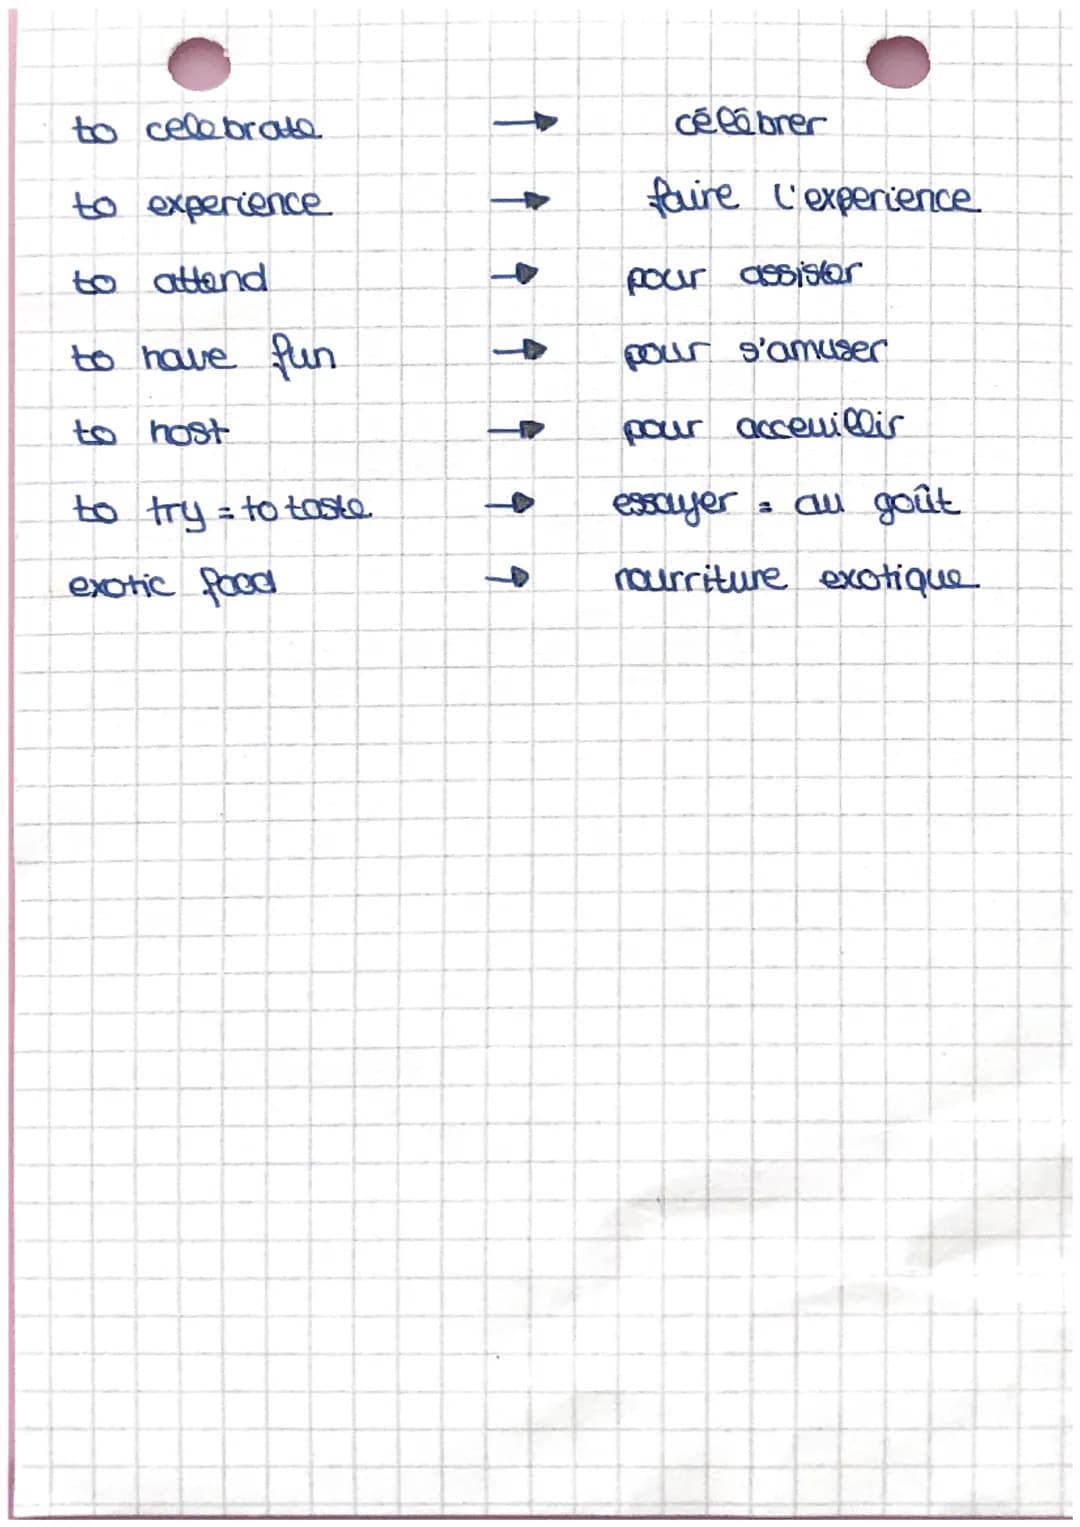 to celebrate → célébrer
to experience → faire l'experience
to attend → pour assister
to have fun → pour s'amuser
to host → pour acceuillir
to try = to taste → essayer = au goût
exotic food → nourriture exotique